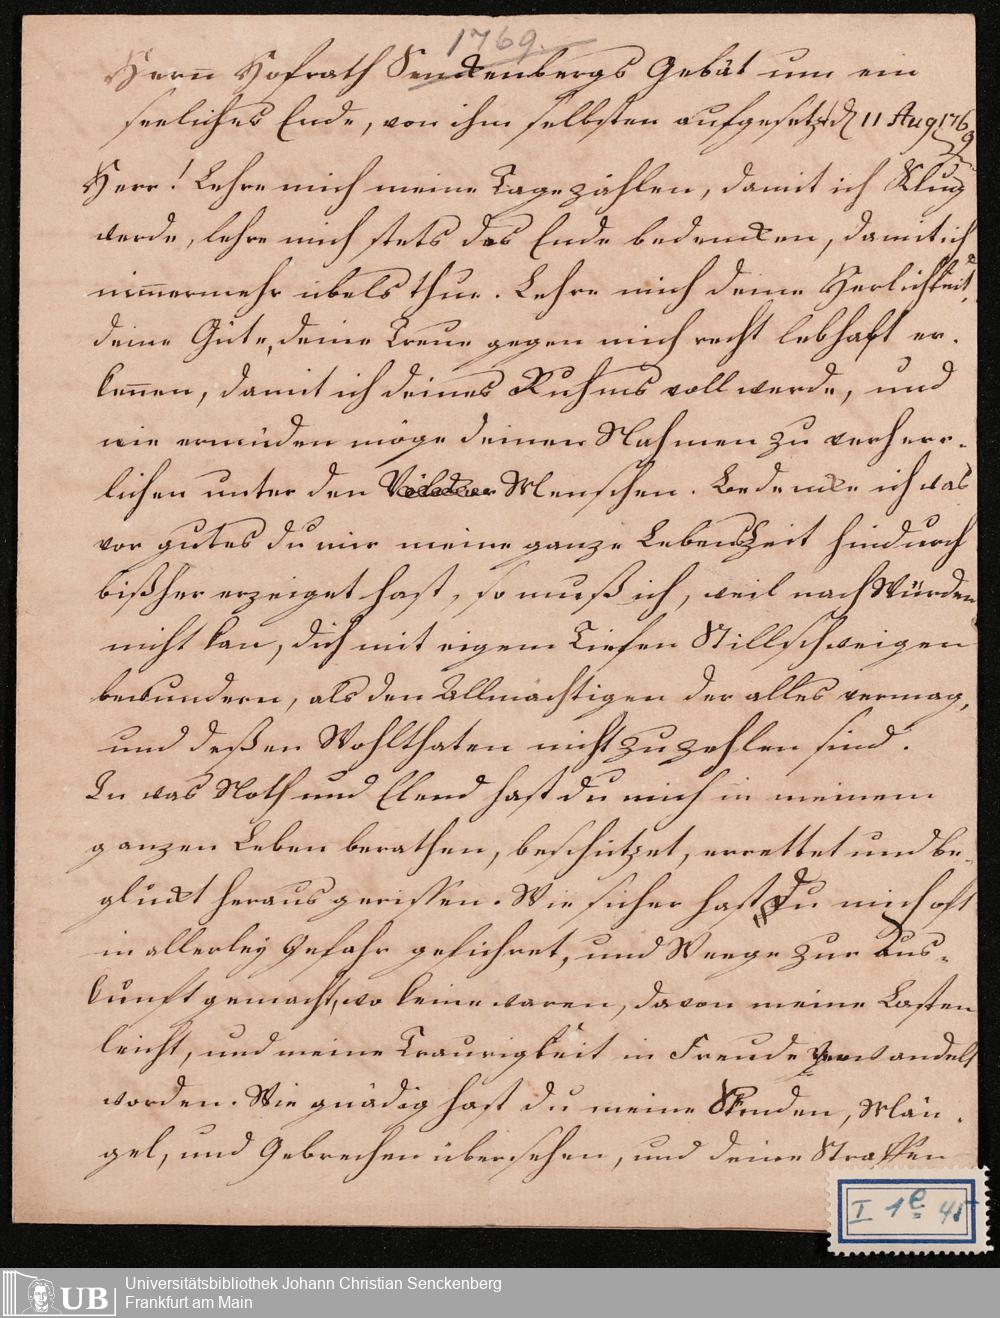 1769.
Herrn Hofrath Senckenbergs Gebät um ein
seeliches Ende, von ihm selbsten aufgesetzt d 11 Aug 1769
Herr! Lehre mich meine Tage zählen, damit ich Klug
werde, lehre mich stets das Ende bedencken, damit ich
nimmermehr übels thue. Lehre mich deine Herlichkeit,
deine Güte, deine Treue gegen mich recht lebhaft er-
kennen, damit ich deines Ruhms voll werde, und
nie ermüden möge deinen Nahmen zu verherr-
lichen unter den Menschen. Bedencke ich was
vor gutes du mir meine ganze Lebenszeit hindurch
bißher erzeiget hast, so muß ich, weil nach Würden
nicht kan, dich mit eigem Tiefen Stillschweigen
bewundern, als den Allmächtigen der alles vermag,
und deßen Wohlthaten nicht zu zehlen sind.
In was Noth und Elend hast du mich in meinem
ganzen Leben berathen, beschützet, errettet und be-
glückt heraus gerissen. Wie sicher hast Du mich oft
in allerley Gefahr geführet, und Weege zur Aus-
kunft gemacht, wo keine waren, davon meine Lasten
leicht, und meine Traurigkeit in Freude verwandelt
worden. Wie gnädig hast du meine Sünden, Män-
gel, und Gebrechen übersehen, und deine Straffen
I 1e 45
UB
Universitätsbibliothek Johann Christian Senckenberg
Frankfurt am Main